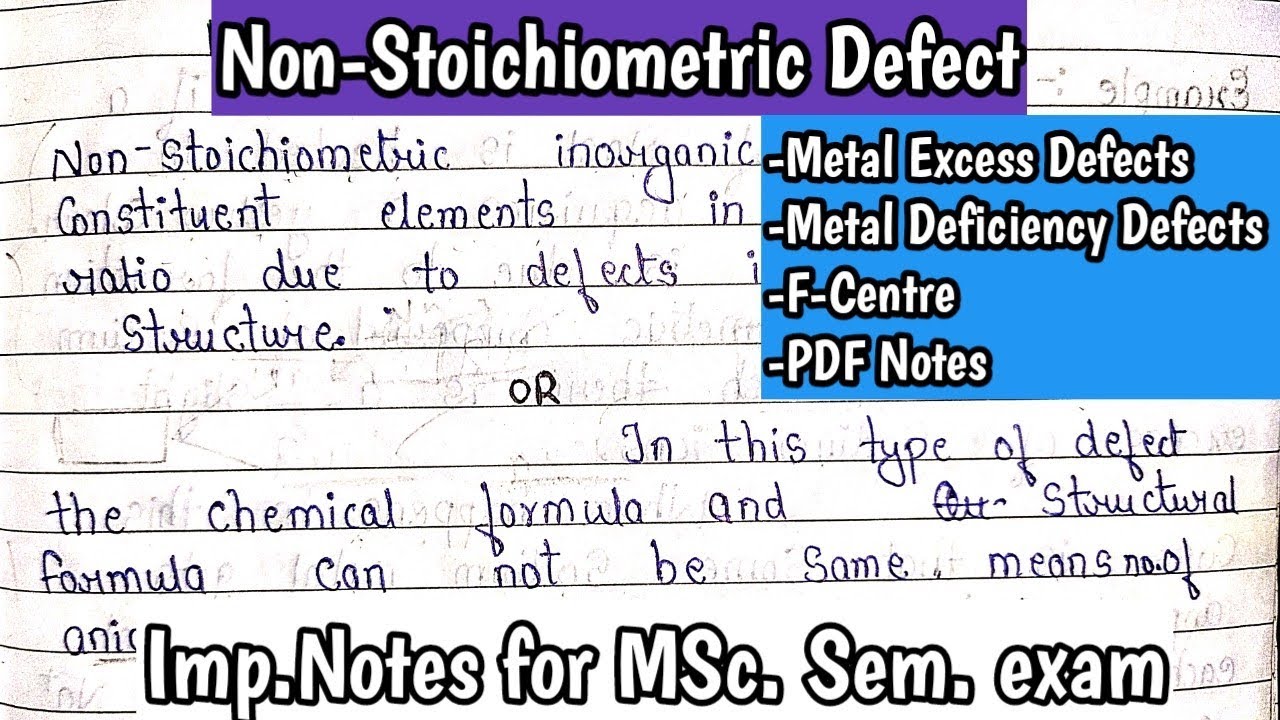 Non-Stoichiometric Defect
Example :-
Non-Stoichiometric inorganic
Constituent elements in
ratio due to defects i
Structure.
-Metal Excess Defects
-Metal Deficiency Defects
-F-Centre
-PDF Notes
OR
In this type of defect
the chemical formula and Structural
formula can not be same. means no.of
Imp.Notes for MSc. Sem. exam